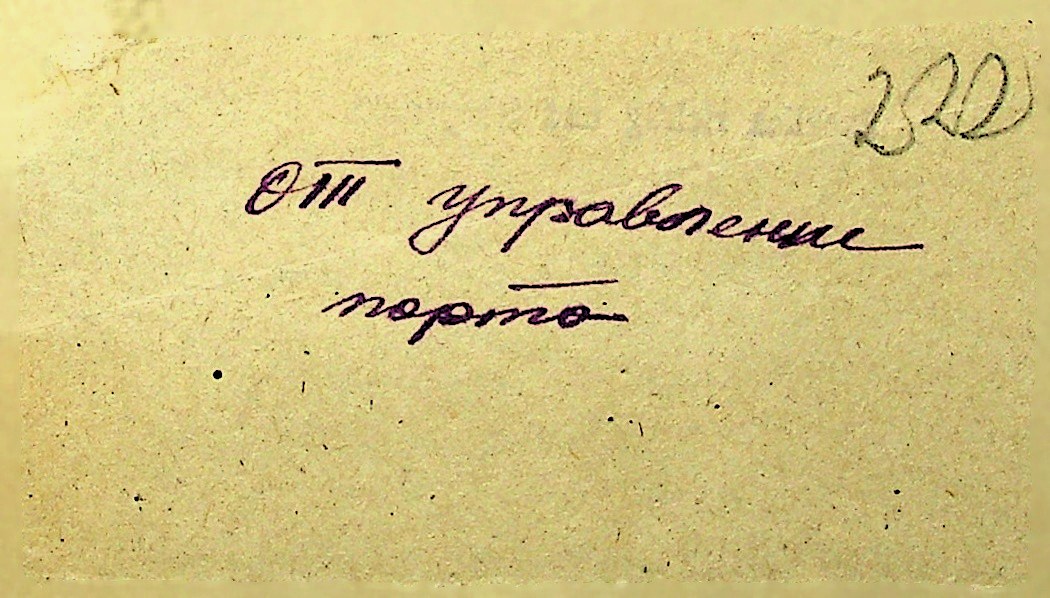 220
От управление
порто